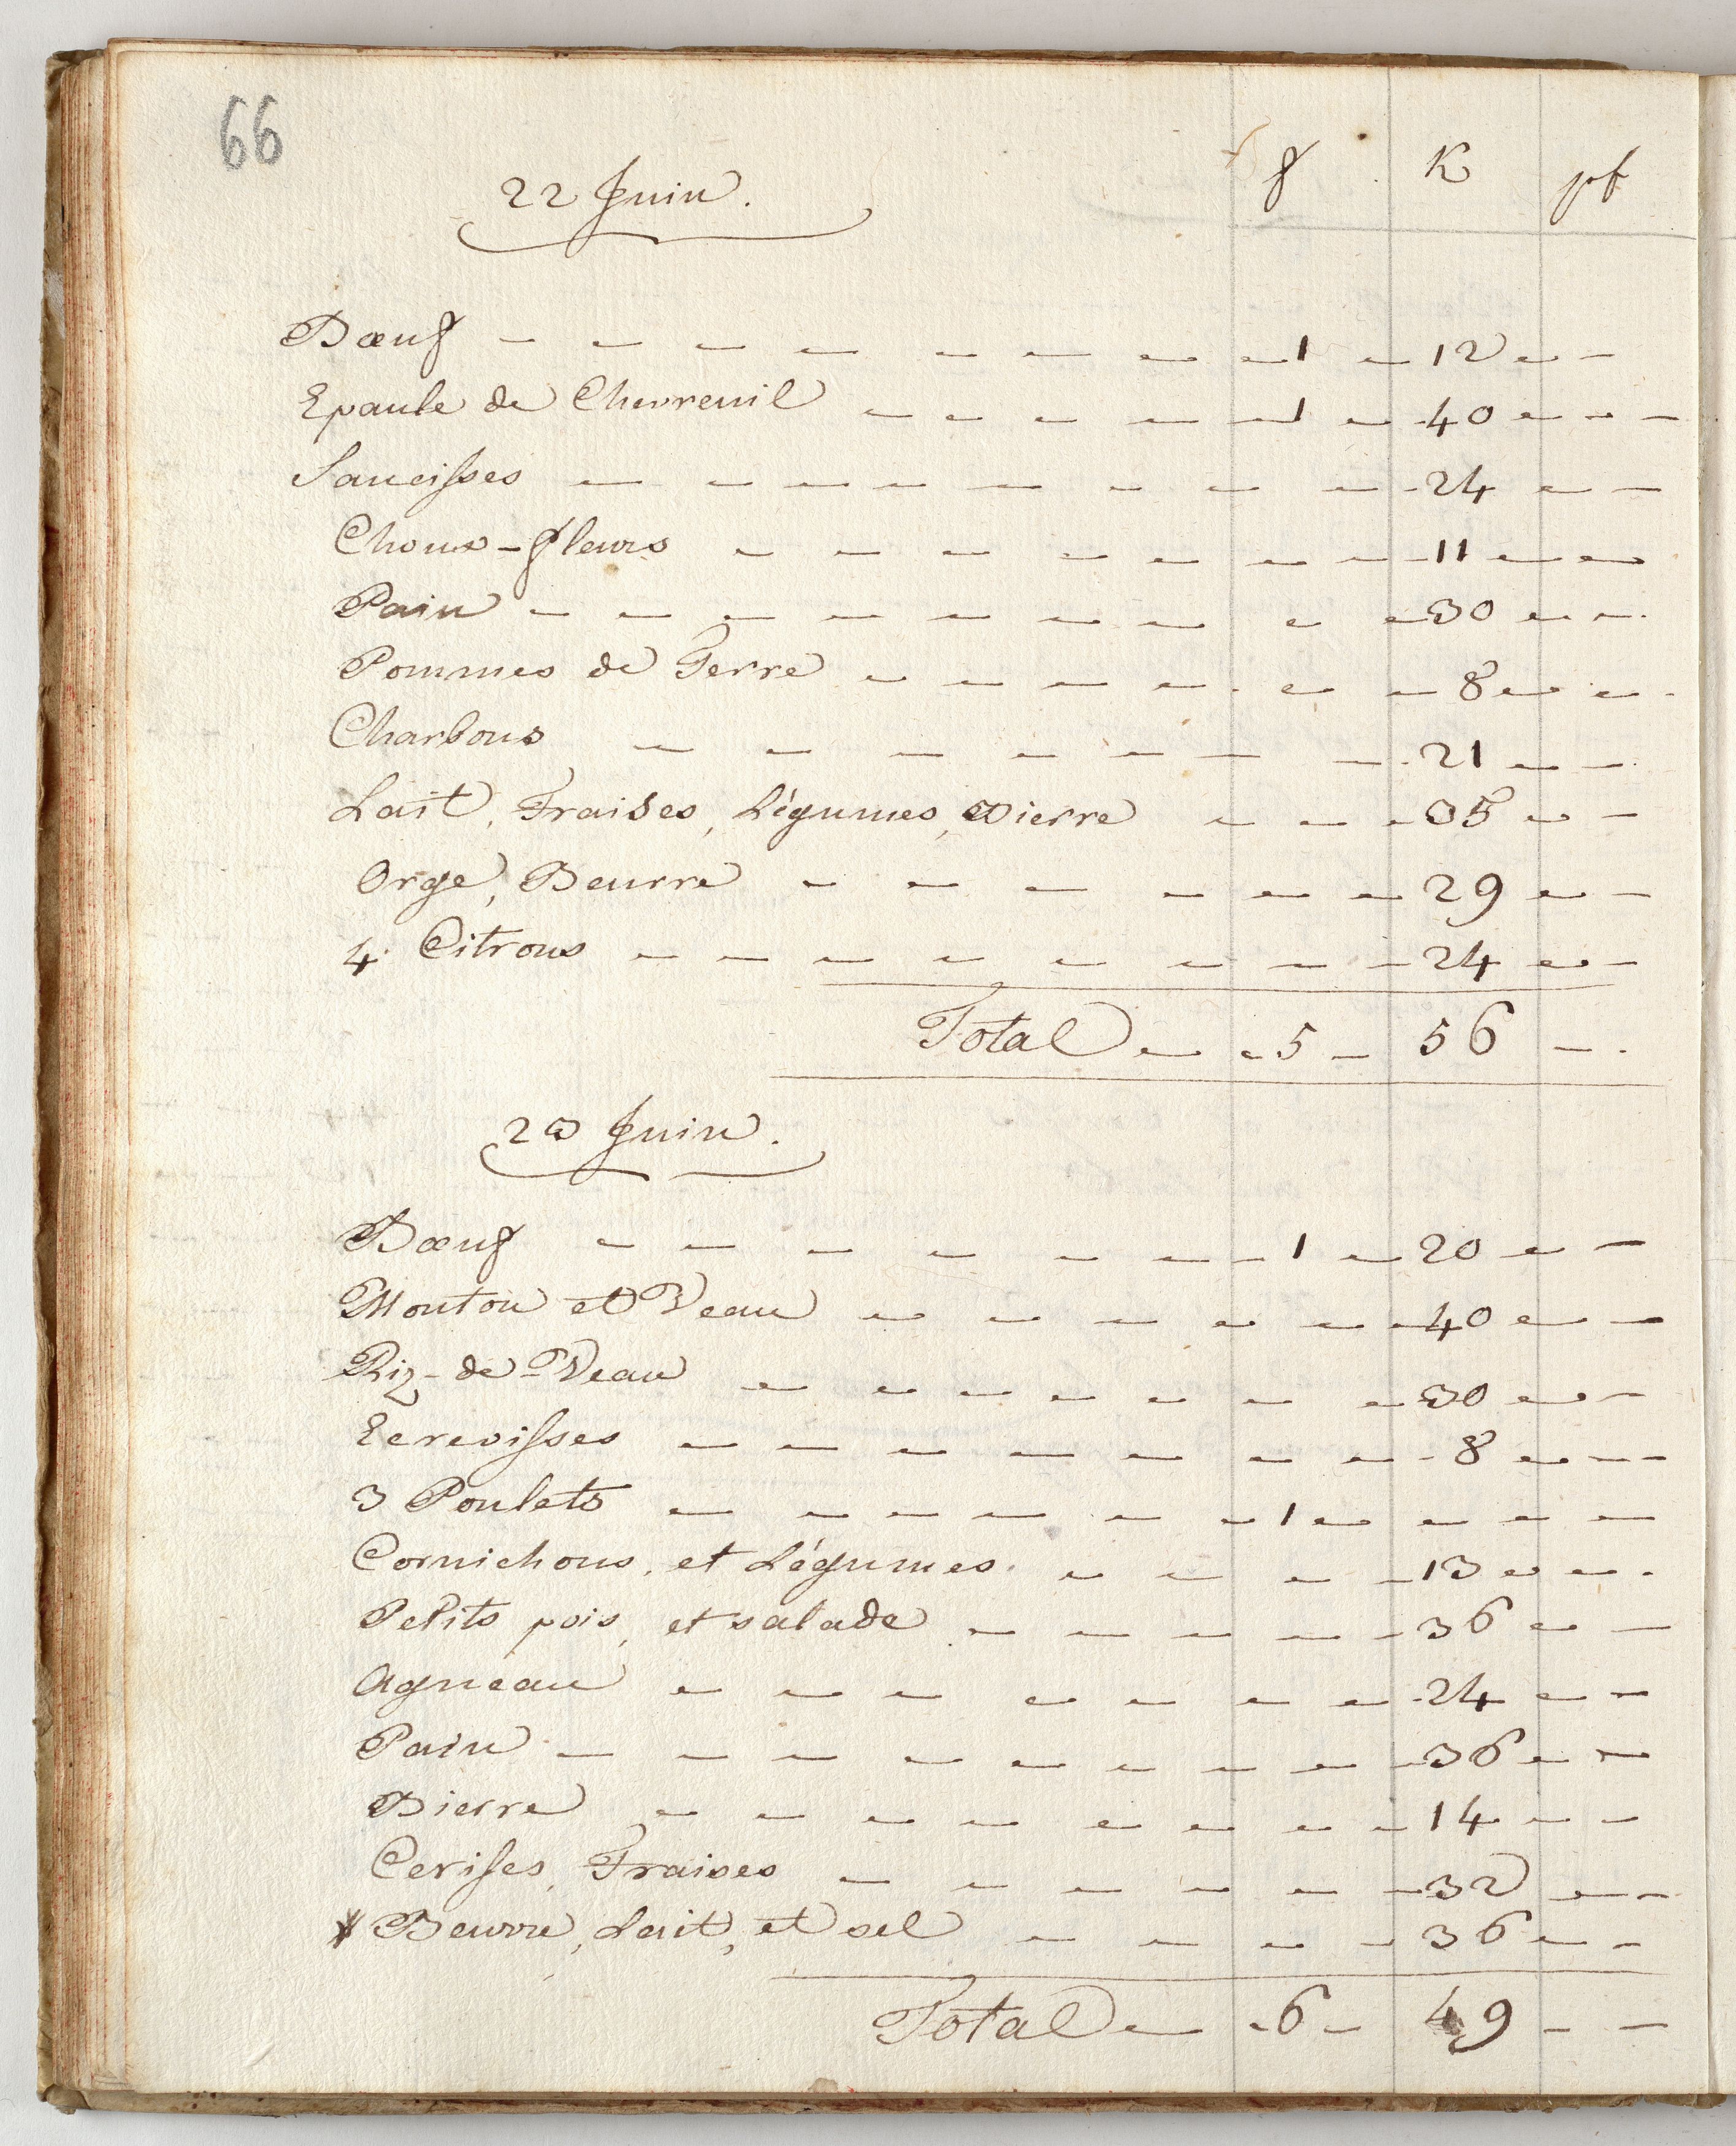 66
22 Juin.
f K pf
Bœuf - - - - - - - - 1 - 12 - -
Epaule de Chevreuil - - - - - 1 - 40 - - -
Saucisses - - - - - - - - 24 - -
Choux-fleurs - - - - - - - 11 - -
Pain - - - - - - - - - 30 - -
Pommes de Terre - - - - - - 8 - -
Charbons - - - - - - - 21 - -
Lait, Fraises, Légumes, Bierre - - - 35 - -
Orge, Beurre - - - - - - 29 - -
4. Citrons - - - - - - - - 24 - -
Total - - 5 - 56 - .
23 Juin.
Bœuf - - - - - - - 1 - 20 - -
Mouton et Veau - - - - - - 40 - -
Riz-de-Veau - - - - - - - 30 - -
Ecrevisses - - - - - - - - 8 - - -
3 Poulets - - - - - - 1 - - - -
Cornichons, et Légumes. - - - - 13 - - .
Petits pois, et salade - - - - - 36 - -
Agneau - - - - - - - - 24 - -
Pain - - - - - - - - - 36 - -
Bierre - - - - - - - - 14 - -
Cerises, Fraises - - - - - - 32 - -
Beurre, Lait, et sel - - - - 36 - -
Total - - 6 - 49 - -